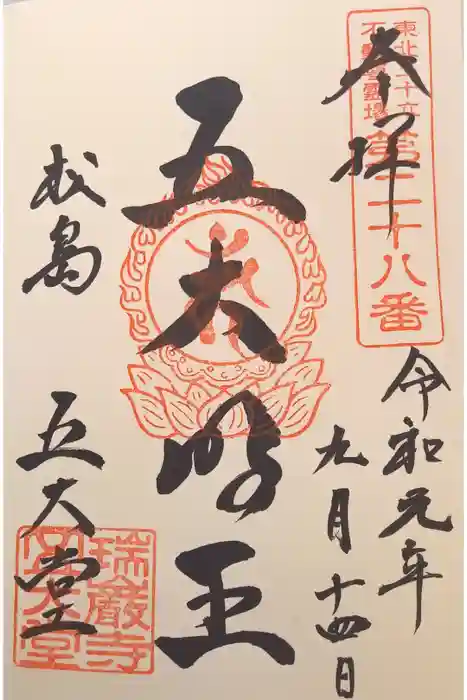 奉拝
東北三十六
不動尊霊場
第二十八番
令和元年
九月十四日
五大明王
松島 五大堂
瑞巌寺
五大堂